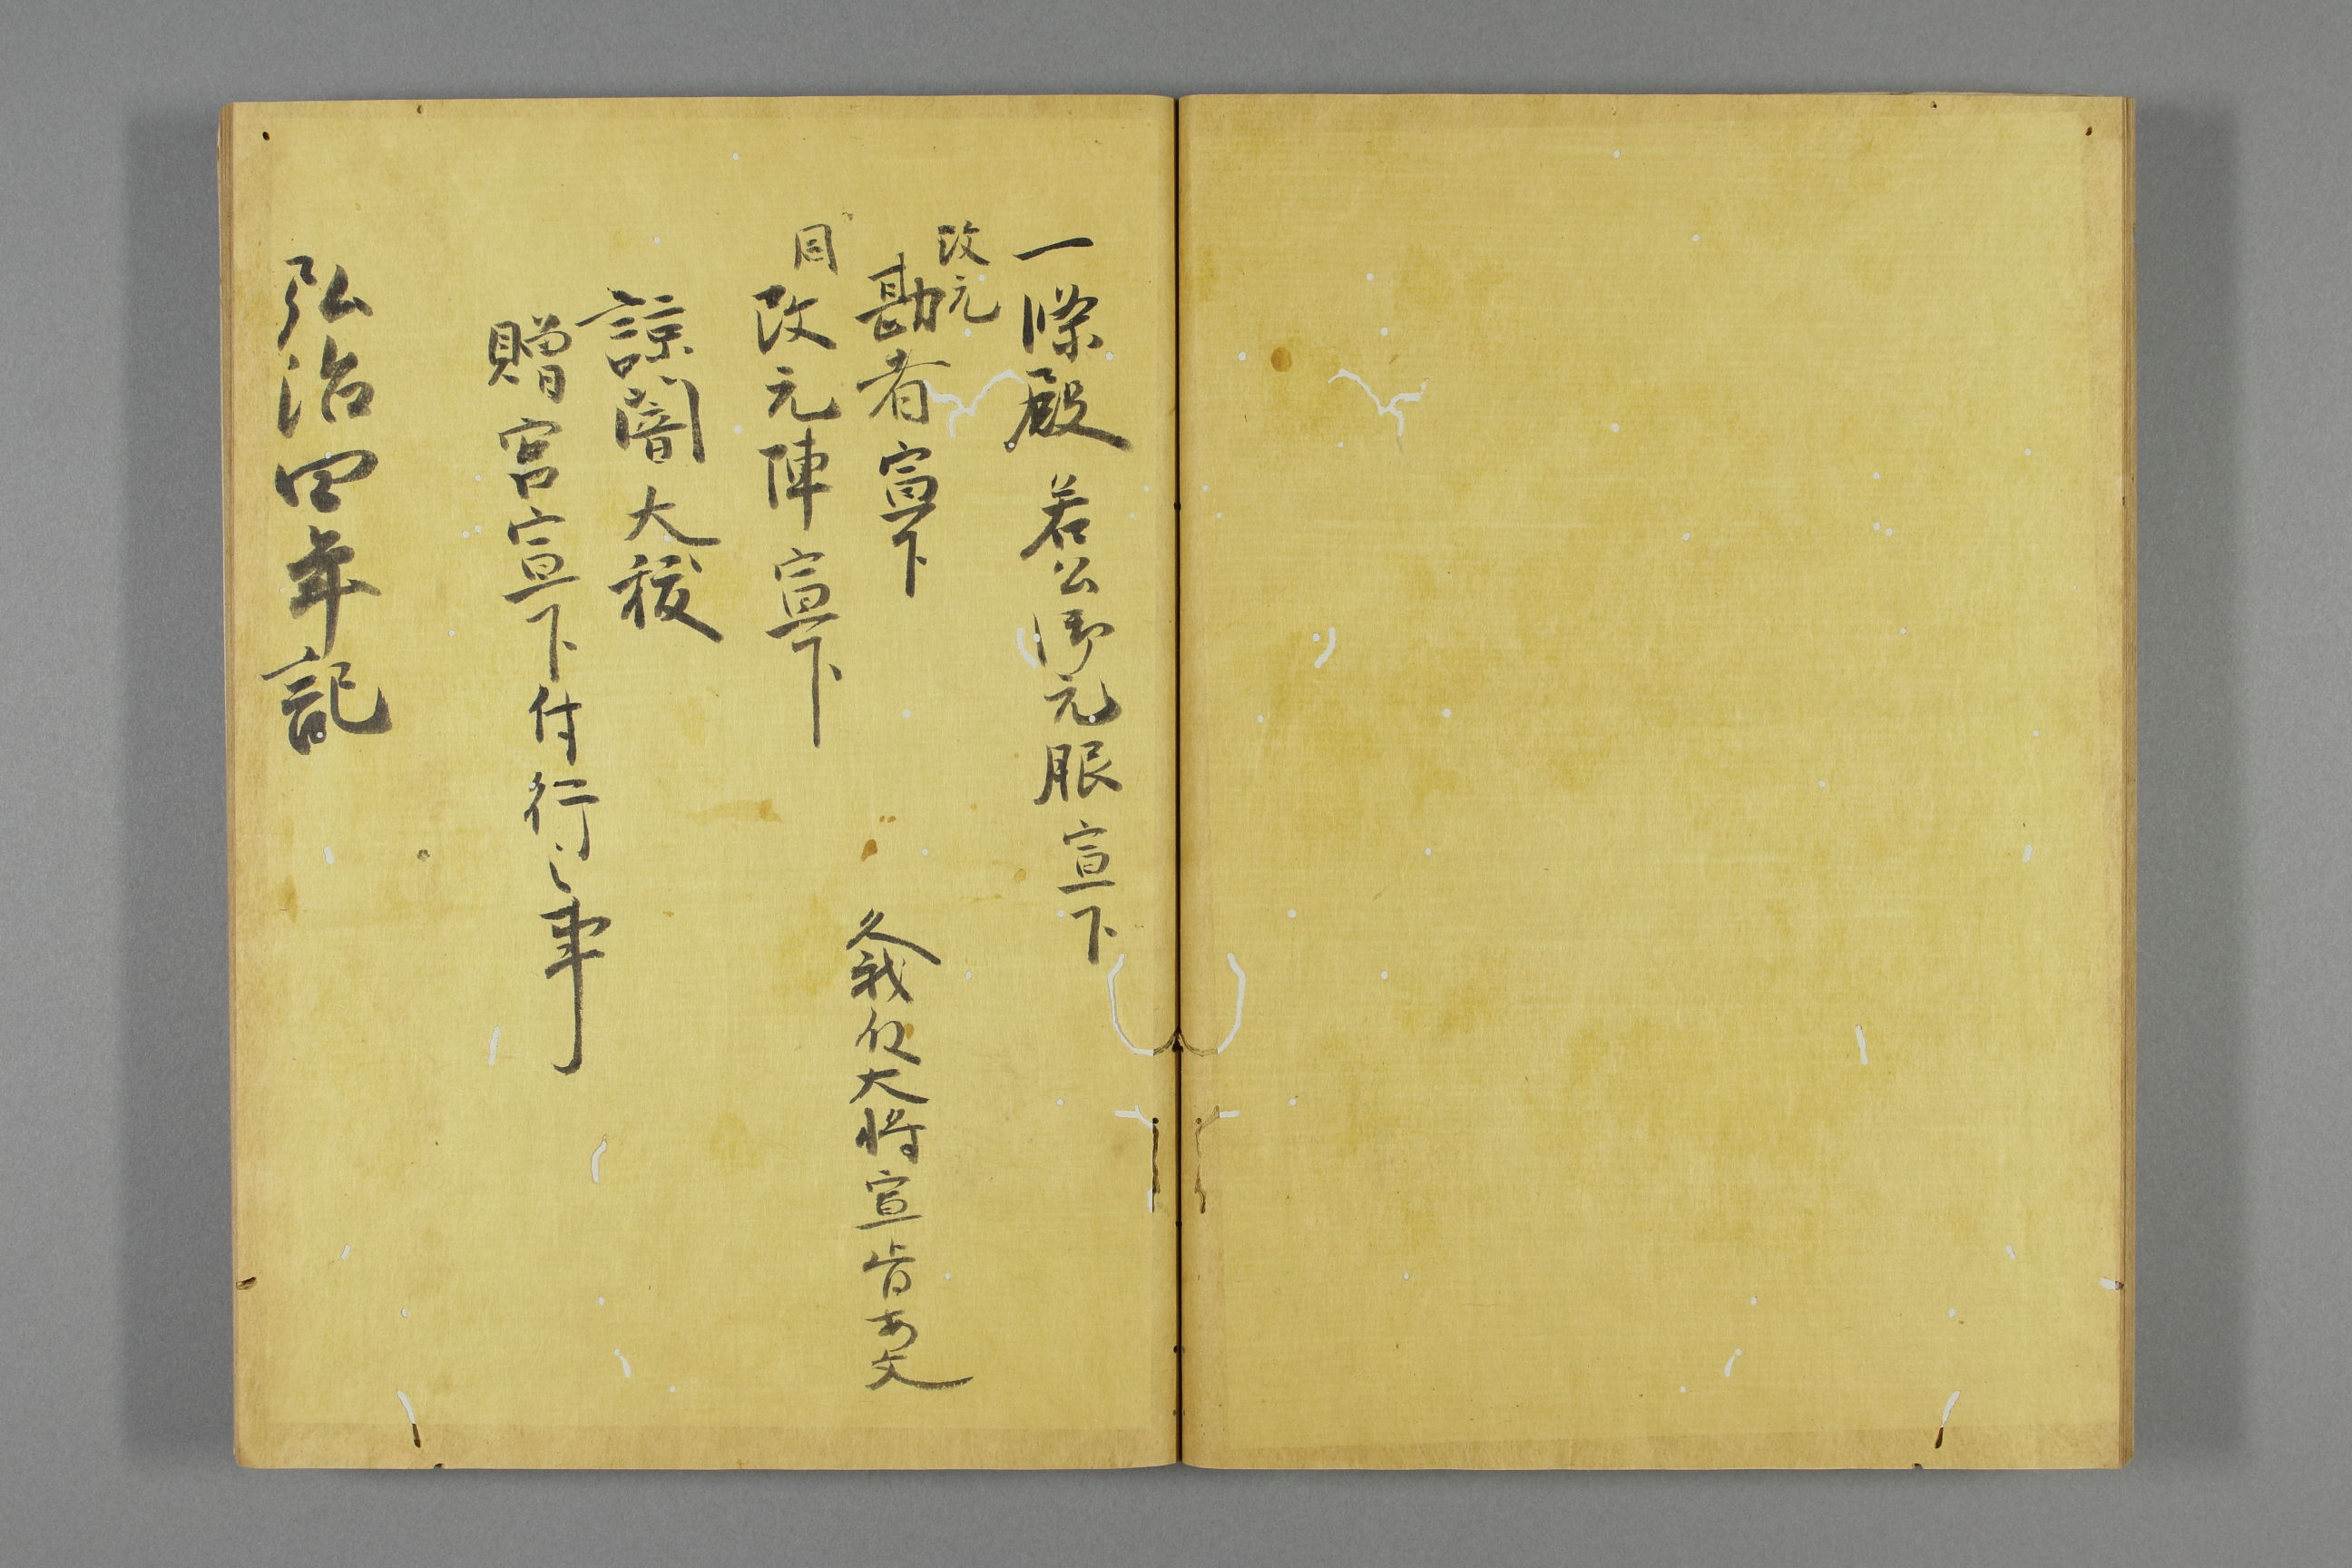 一條殿 若公御元服宣下
改元
勘者宣下
久我殿大将宣旨文
同
改元陣宣下
諒闇大祓
贈官宣下付行之事
弘治四年記